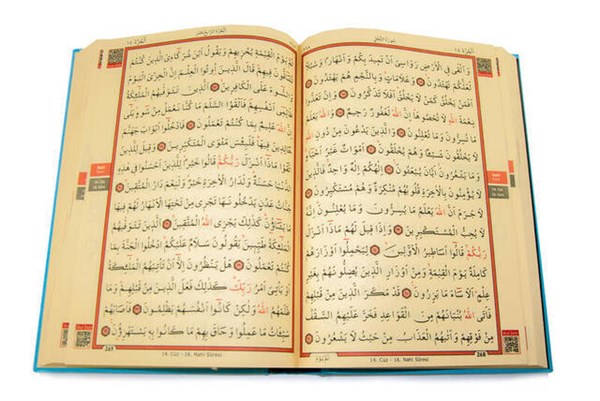 سُورَةُ النَّحْلِ
وَأَلْقَى فِي الْأَرْضِ رَوَاسِيَ أَنْ تَمِيدَ بِكُمْ وَأَنْهَارًا وَسُبُلًا
لَعَلَّكُمْ تَهْتَدُونَ وَعَلَامَاتٍ وَبِالنَّجْمِ هُمْ يَهْتَدُونَ
أَفَمَنْ يَخْلُقُ كَمَنْ لَا يَخْلُقُ أَفَلَا تَذَكَّرُونَ وَإِنْ تَعُدُّوا
نِعْمَةَ اللَّهِ لَا تُحْصُوهَا إِنَّ اللَّهَ لَغَفُورٌ رَحِيمٌ وَاللَّهُ يَعْلَمُ
مَا تُسِرُّونَ وَمَا تُعْلِنُونَ وَالَّذِينَ يَدْعُونَ مِنْ دُونِ اللَّهِ
لَا يَخْلُقُونَ شَيْئًا وَهُمْ يُخْلَقُونَ أَمْوَاتٌ غَيْرُ أَحْيَاءٍ
وَمَا يَشْعُرُونَ أَيَّانَ يُبْعَثُونَ إِلَهُكُمْ إِلَهٌ وَاحِدٌ فَالَّذِينَ
لَا يُؤْمِنُونَ بِالْآخِرَةِ قُلُوبُهُمْ مُنْكِرَةٌ وَهُمْ مُسْتَكْبِرُونَ
لَا جَرَمَ أَنَّ اللَّهَ يَعْلَمُ مَا يُسِرُّونَ وَمَا يُعْلِنُونَ إِنَّهُ
لَا يُحِبُّ الْمُسْتَكْبِرِينَ وَإِذَا قِيلَ لَهُمْ مَاذَا أَنْزَلَ
رَبُّكُمْ قَالُوا أَسَاطِيرُ الْأَوَّلِينَ لِيَحْمِلُوا أَوْزَارَهُمْ
كَامِلَةً يَوْمَ الْقِيَامَةِ وَمِنْ أَوْزَارِ الَّذِينَ يُضِلُّونَهُمْ بِغَيْرِ
عِلْمٍ أَلَا سَاءَ مَا يَزِرُونَ قَدْ مَكَرَ الَّذِينَ مِنْ قَبْلِهِمْ
فَأَتَى اللَّهُ بُنْيَانَهُمْ مِنَ الْقَوَاعِدِ فَخَرَّ عَلَيْهِمُ السَّقْفُ
مِنْ فَوْقِهِمْ وَأَتَاهُمُ الْعَذَابُ مِنْ حَيْثُ لَا يَشْعُرُونَ
14. Cüz - 16. Nahl Sûresi
268
اَلْجُزْءُ الرَّابِعَ عَشَرَ
ثُمَّ يَوْمَ الْقِيَامَةِ يُخْزِيهِمْ وَيَقُولُ أَيْنَ شُرَكَائِيَ الَّذِينَ كُنْتُمْ
تُشَاقُّونَ فِيهِمْ قَالَ الَّذِينَ أُوتُوا الْعِلْمَ إِنَّ الْخِزْيَ الْيَوْمَ
وَالسُّوءَ عَلَى الْكَافِرِينَ الَّذِينَ تَتَوَفَّاهُمُ الْمَلَائِكَةُ
ظَالِمِي أَنْفُسِهِمْ فَأَلْقَوُا السَّلَمَ مَا كُنَّا نَعْمَلُ مِنْ سُوءٍ بَلَى
إِنَّ اللَّهَ عَلِيمٌ بِمَا كُنْتُمْ تَعْمَلُونَ فَادْخُلُوا أَبْوَابَ جَهَنَّمَ
خَالِدِينَ فِيهَا فَلَبِئْسَ مَثْوَى الْمُتَكَبِّرِينَ وَقِيلَ لِلَّذِينَ
اتَّقَوْا مَاذَا أَنْزَلَ رَبُّكُمْ قَالُوا خَيْرًا لِلَّذِينَ أَحْسَنُوا فِي هَذِهِ
الدُّنْيَا حَسَنَةٌ وَلَدَارُ الْآخِرَةِ خَيْرٌ وَلَنِعْمَ دَارُ الْمُتَّقِينَ
جَنَّاتُ عَدْنٍ يَدْخُلُونَهَا تَجْرِي مِنْ تَحْتِهَا الْأَنْهَارُ لَهُمْ فِيهَا
مَا يَشَاؤُنَ كَذَلِكَ يَجْزِي اللَّهُ الْمُتَّقِينَ الَّذِينَ تَتَوَفَّاهُمُ
الْمَلَائِكَةُ طَيِّبِينَ يَقُولُونَ سَلَامٌ عَلَيْكُمُ ادْخُلُوا الْجَنَّةَ بِمَا
كُنْتُمْ تَعْمَلُونَ هَلْ يَنْظُرُونَ إِلَّا أَنْ تَأْتِيَهُمُ الْمَلَائِكَةُ
أَوْ يَأْتِيَ أَمْرُ رَبِّكَ كَذَلِكَ فَعَلَ الَّذِينَ مِنْ قَبْلِهِمْ وَمَا
ظَلَمَهُمُ اللَّهُ وَلَكِنْ كَانُوا أَنْفُسَهُمْ يَظْلِمُونَ فَأَصَابَهُمْ
سَيِّئَاتُ مَا عَمِلُوا وَحَاقَ بِهِمْ مَا كَانُوا بِهِ يَسْتَهْزِؤُنَ
269
14. Cüz - 16. Nahl Sûresi